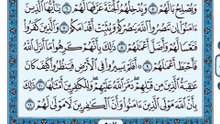 وَيُصْلِحُ بَالَهُمْ ٥ وَيُدْخِلُهُمُ ٱلْجَنَّةَ عَرَّفَهَا لَهُمْ ٦ يَٰٓأَيُّهَا ٱلَّذِينَ
ءَامَنُوٓا۟ إِن تَنصُرُوا۟ ٱللَّهَ يَنصُرْكُمْ وَيُثَبِّتْ أَقْدَامَكُمْ ٧ وَٱلَّذِينَ
كَفَرُوا۟ فَتَعْسًا لَّهُمْ وَأَضَلَّ أَعْمَٰلَهُمْ ٨ ذَٰلِكَ بِأَنَّهُمْ كَرِهُوا۟ مَآ أَنزَلَ ٱللَّهُ
فَأَحْبَطَ أَعْمَٰلَهُمْ ٩ أَفَلَمْ يَسِيرُوا۟ فِى ٱلْأَرْضِ فَيَنظُرُوا۟ كَيْفَ كَانَ
عَٰقِبَةُ ٱلَّذِينَ مِن قَبْلِهِمْ دَمَّرَ ٱللَّهُ عَلَيْهِمْ وَلِلْكَٰفِرِينَ أَمْثَٰلُهَا ١٠ ذَٰلِكَ
بِأَنَّ ٱللَّهَ مَوْلَى ٱلَّذِينَ ءَامَنُوا۟ وَأَنَّ ٱلْكَٰفِرِينَ لَا مَوْلَىٰ لَهُمْ ١١